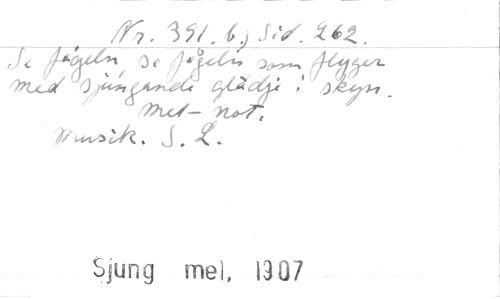 Nr. 391. b, Sid. 262.
Se fågeln, se fågeln som flyger
med sjungande glädje i skyn.
Mel-not.
Musik. S. L.
Sjung mel, 1907